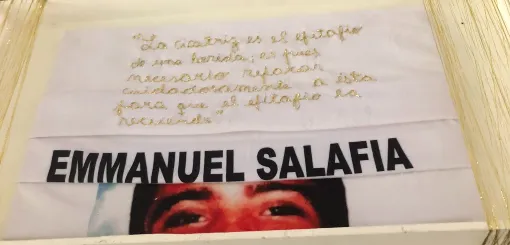 "La cicatriz es el epitafio
de una herida, es pues
necesario reparar
cuidadosamente a ésta
para que el epitafio la
recuerde"
EMMANUEL SALAFIA